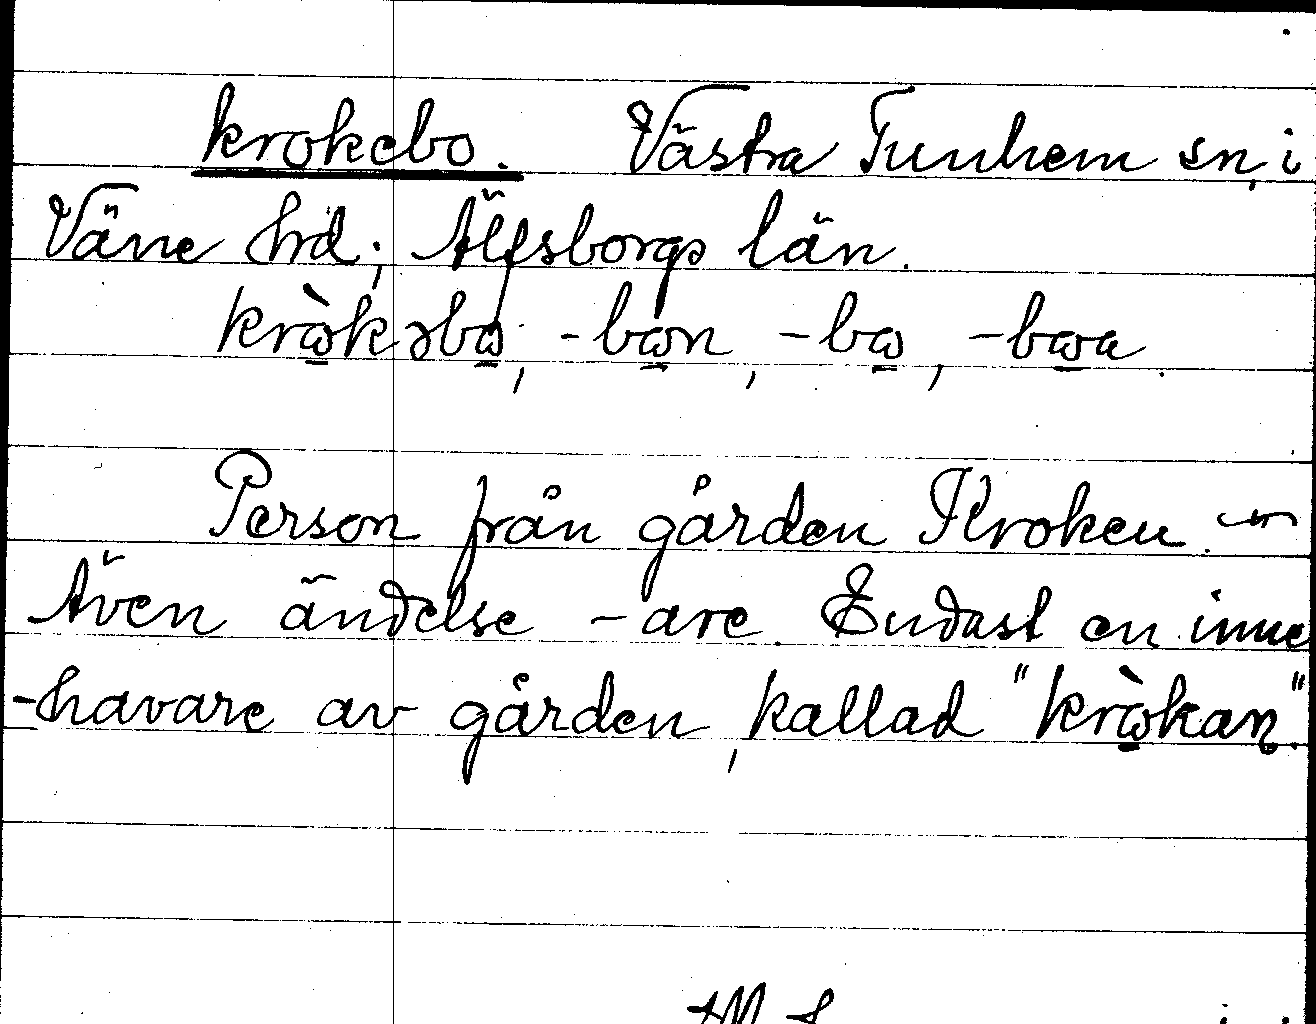 krokebo. Västra Tunhem sn, i
Väne hd; Älfsborgs län.
krὼ̱kəbω̱, -bω̱n, -bω̱, -bω̱a.
Person från gården Kroken.
Även ändelse -are. Endast en inne
-havare av gården, kallad "krὼ̱kan".